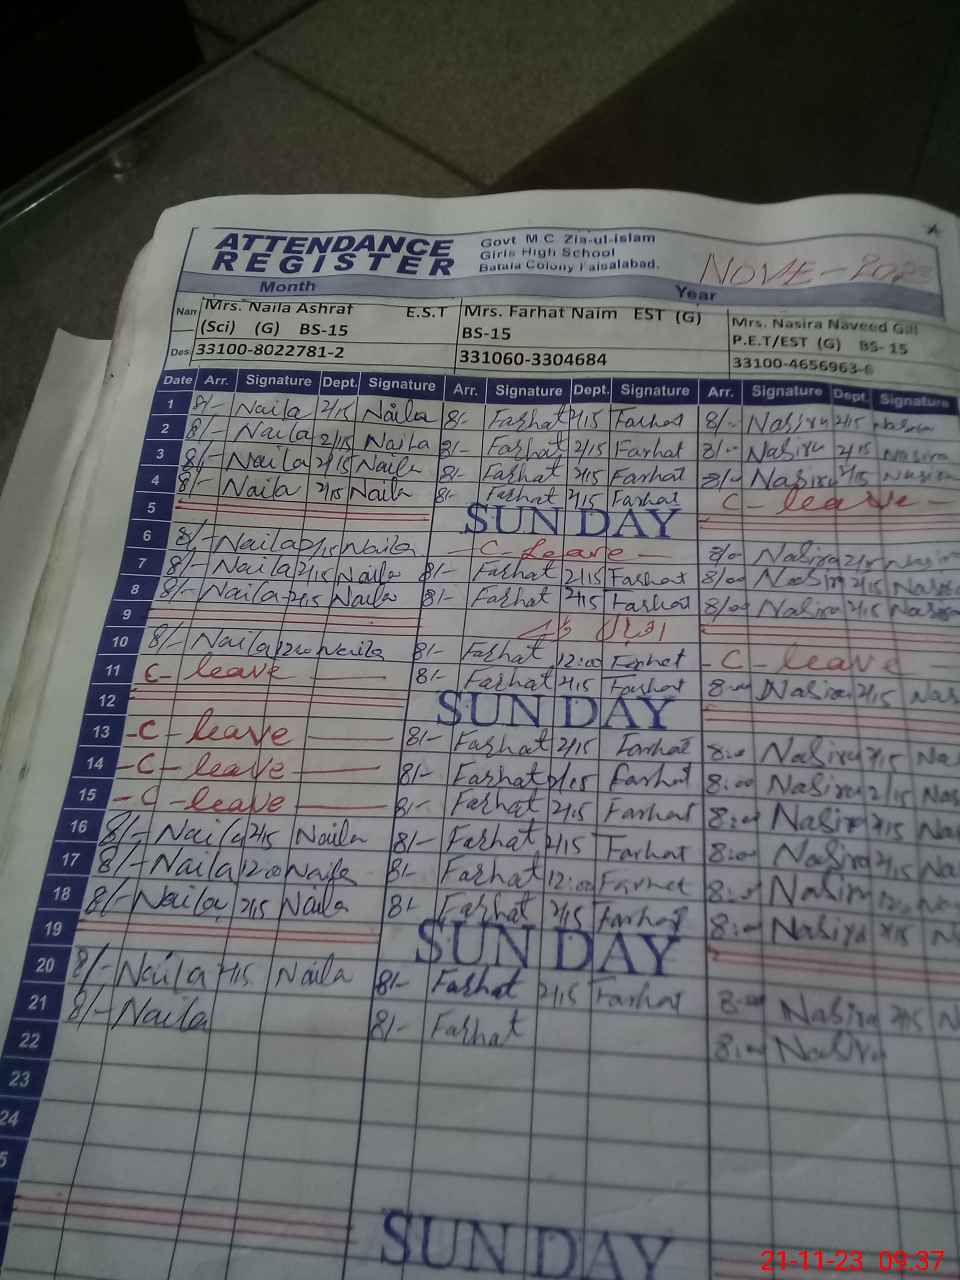 ATTENDANCE REGISTER
Govt M.C. Zia-ul-islam
Girls High School
Batala Colony Faisalabad.
NOVE-2023
Month Year
Nam Mrs. Naila Ashraf E.S.T Mrs. Farhat Naim EST (G) Mrs. Nasira Naveed Gal
(Sci) (G) BS-15 BS-15 P.E.T/EST (G) BS-15
Des 33100-8022781-2 331060-3304684 33100-4656963-6
Date Arr. Signature Dept. Signature Arr. Signature Dept. Signature Arr. Signature Dept. Signature
1 8/- Naila 2/15 Naila 8/- Farhat 2/15 Farhat 8/- Nasira 2/15 Nasira
2 8/- Naila 2/15 Naila 8/- Farhat 2/15 Farhat 8/- Nasira 2/15 Nasira
3 8/- Naila 2/15 Naila 8/- Farhat 2/15 Farhat 8/- Nasira 2/15 Nasira
4 8/- Naila 2/15 Naila 8/- Farhat 2/15 Farhat C - leave -
5 SUNDAY
6 8/- Naila 2/15 Naila - C - Leave - 8/00 Nasira 2/15 Nasira
7 8/- Naila 2/15 Naila 8/- Farhat 2/15 Farhat 8/00 Nasira 2/15 Nasira
8 8/- Naila 2/15 Naila 8/- Farhat 2/15 Farhat 8/00 Nasira 2/15 Nasira
9
10 8/- Naila 12:00 Naila 8/- Farhat 12:00 Farhat - C - leave -
11 C - leave 8/- Farhat 2/15 Farhat 8:00 Nasira 2/15 Nas
12 SUNDAY
13 - C - leave 8/- Farhat 2/15 Farhat 8:00 Nasira 2/15 Na
14 - C - leave 8/- Farhat 2/15 Farhat 8:00 Nasira 2/15 Nas
15 - C - leave 8/- Farhat 2/15 Farhat 8:00 Nasira 2/15 Na
16 8/- Naila 2/15 Naila 8/- Farhat 2/15 Farhat 8:00 Nasira 2/15 Na
17 8/- Naila 12:00 Naila 8/- Farhat 12:00 Farhat 8:00 Nasira 12:00 Na
18 8/- Naila 2/15 Naila 8/- Farhat 2/15 Farhat 8:00 Nasira 2/15 N
19 SUNDAY
20 8/- Naila 2/15 Naila 8/- Farhat 2/15 Farhat 8:00 Nasira 2/15 N
21 8/- Naila 8/- Farhat 8:00 Nasira
22
23
24
5
SUNDAY
21-11-23 09:37